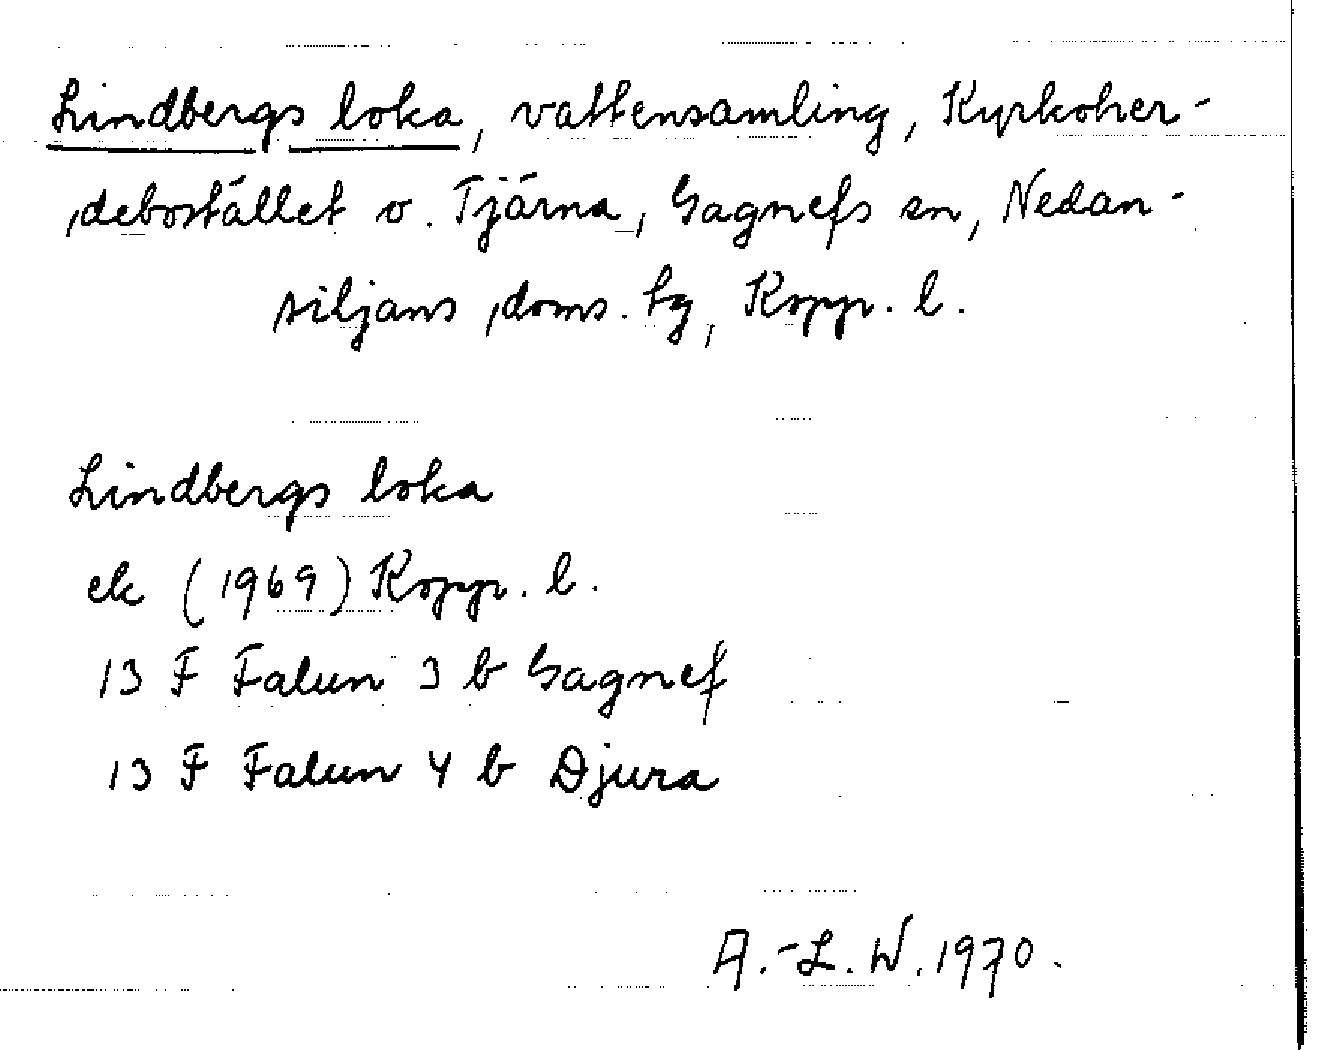 Lindbergs loka, vattensamling, Kyrkoher-
debostället o. Tjärna, Gagnefs sn, Nedan-
siljans doms. tg, Kopp. l.
Lindbergs loka
ek (1969) Kopp. l.
13 F Falun 3 b Gagnef
13 F Falun 4 b Djura
A.-L. W. 1970.